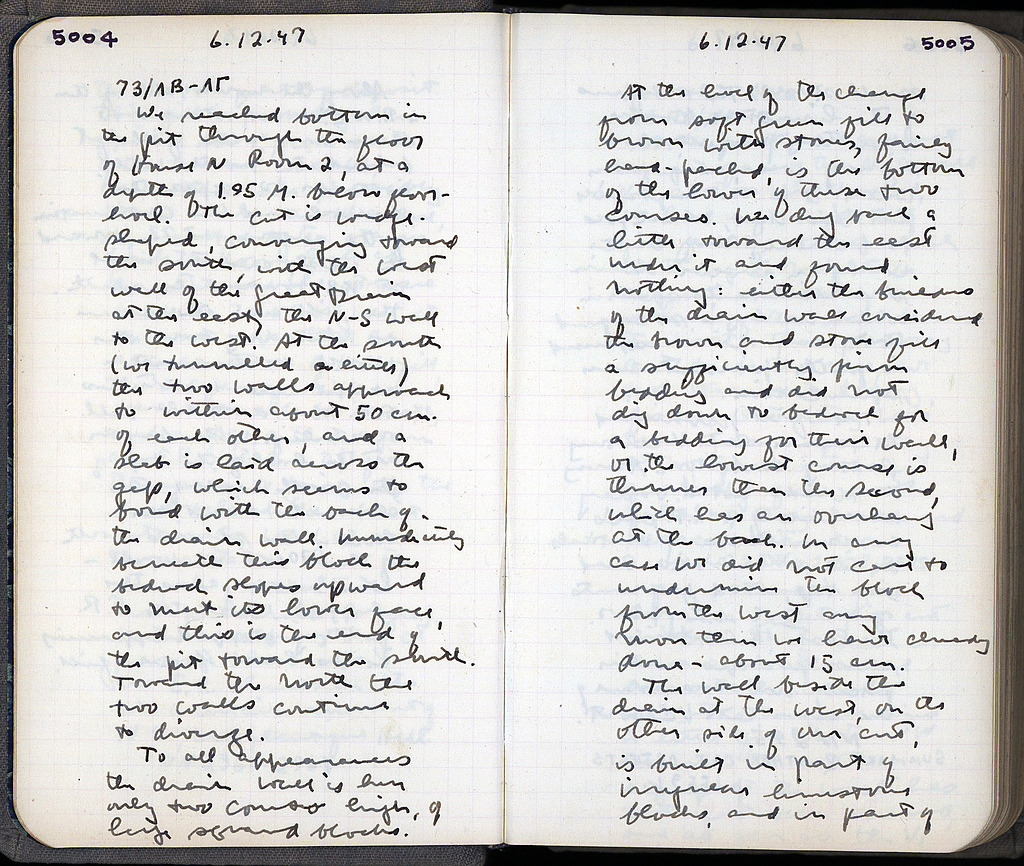 5004
6.12.47
73/ΛB-ΛΓ
We reached bottom in
the pit through the floor
of House N Room 2, at a
depth of 1.95 M. below floor-
level. The cut is wedge-
shaped, converging toward
the south, with the west
wall of the great drain
at the east, the N-S wall
to the west. At the south
(we tunnelled a little)
the two walls approach
to within about 50 cm.
of each other, and a
slab is laid across the
gap, which seems to
bond with the back of
the drain wall. Immediately
beneath this block the
bedrock slopes upward
to meet its lower face,
and this is the end of
the pit toward the south.
Toward the north the
two walls continue
to diverge.
To all appearances
the drain wall is here
only two courses high, of
large squared blocks.
6.12.47
5005
At the level of the change
from soft green fill to
brown with stones, fairly
hard-packed, is the bottom
of the lower of these two
courses. We dug back a
little toward the east
under it and found
nothing: either the builders
of the drain wall considered
the brown and stone fill
a sufficiently firm
bedding and did not
dig down to bedrock for
a bedding for their wall,
or the lowest course is
thinner than the second,
which has an overhang
at the back. In any
case we did not care to
undermine the block
from the west any
more than we have already
done - about 15 cm.
The wall beside the
drain at the west, on the
other side of our cut,
is built in part of
irregular limestone
blocks, and in part of